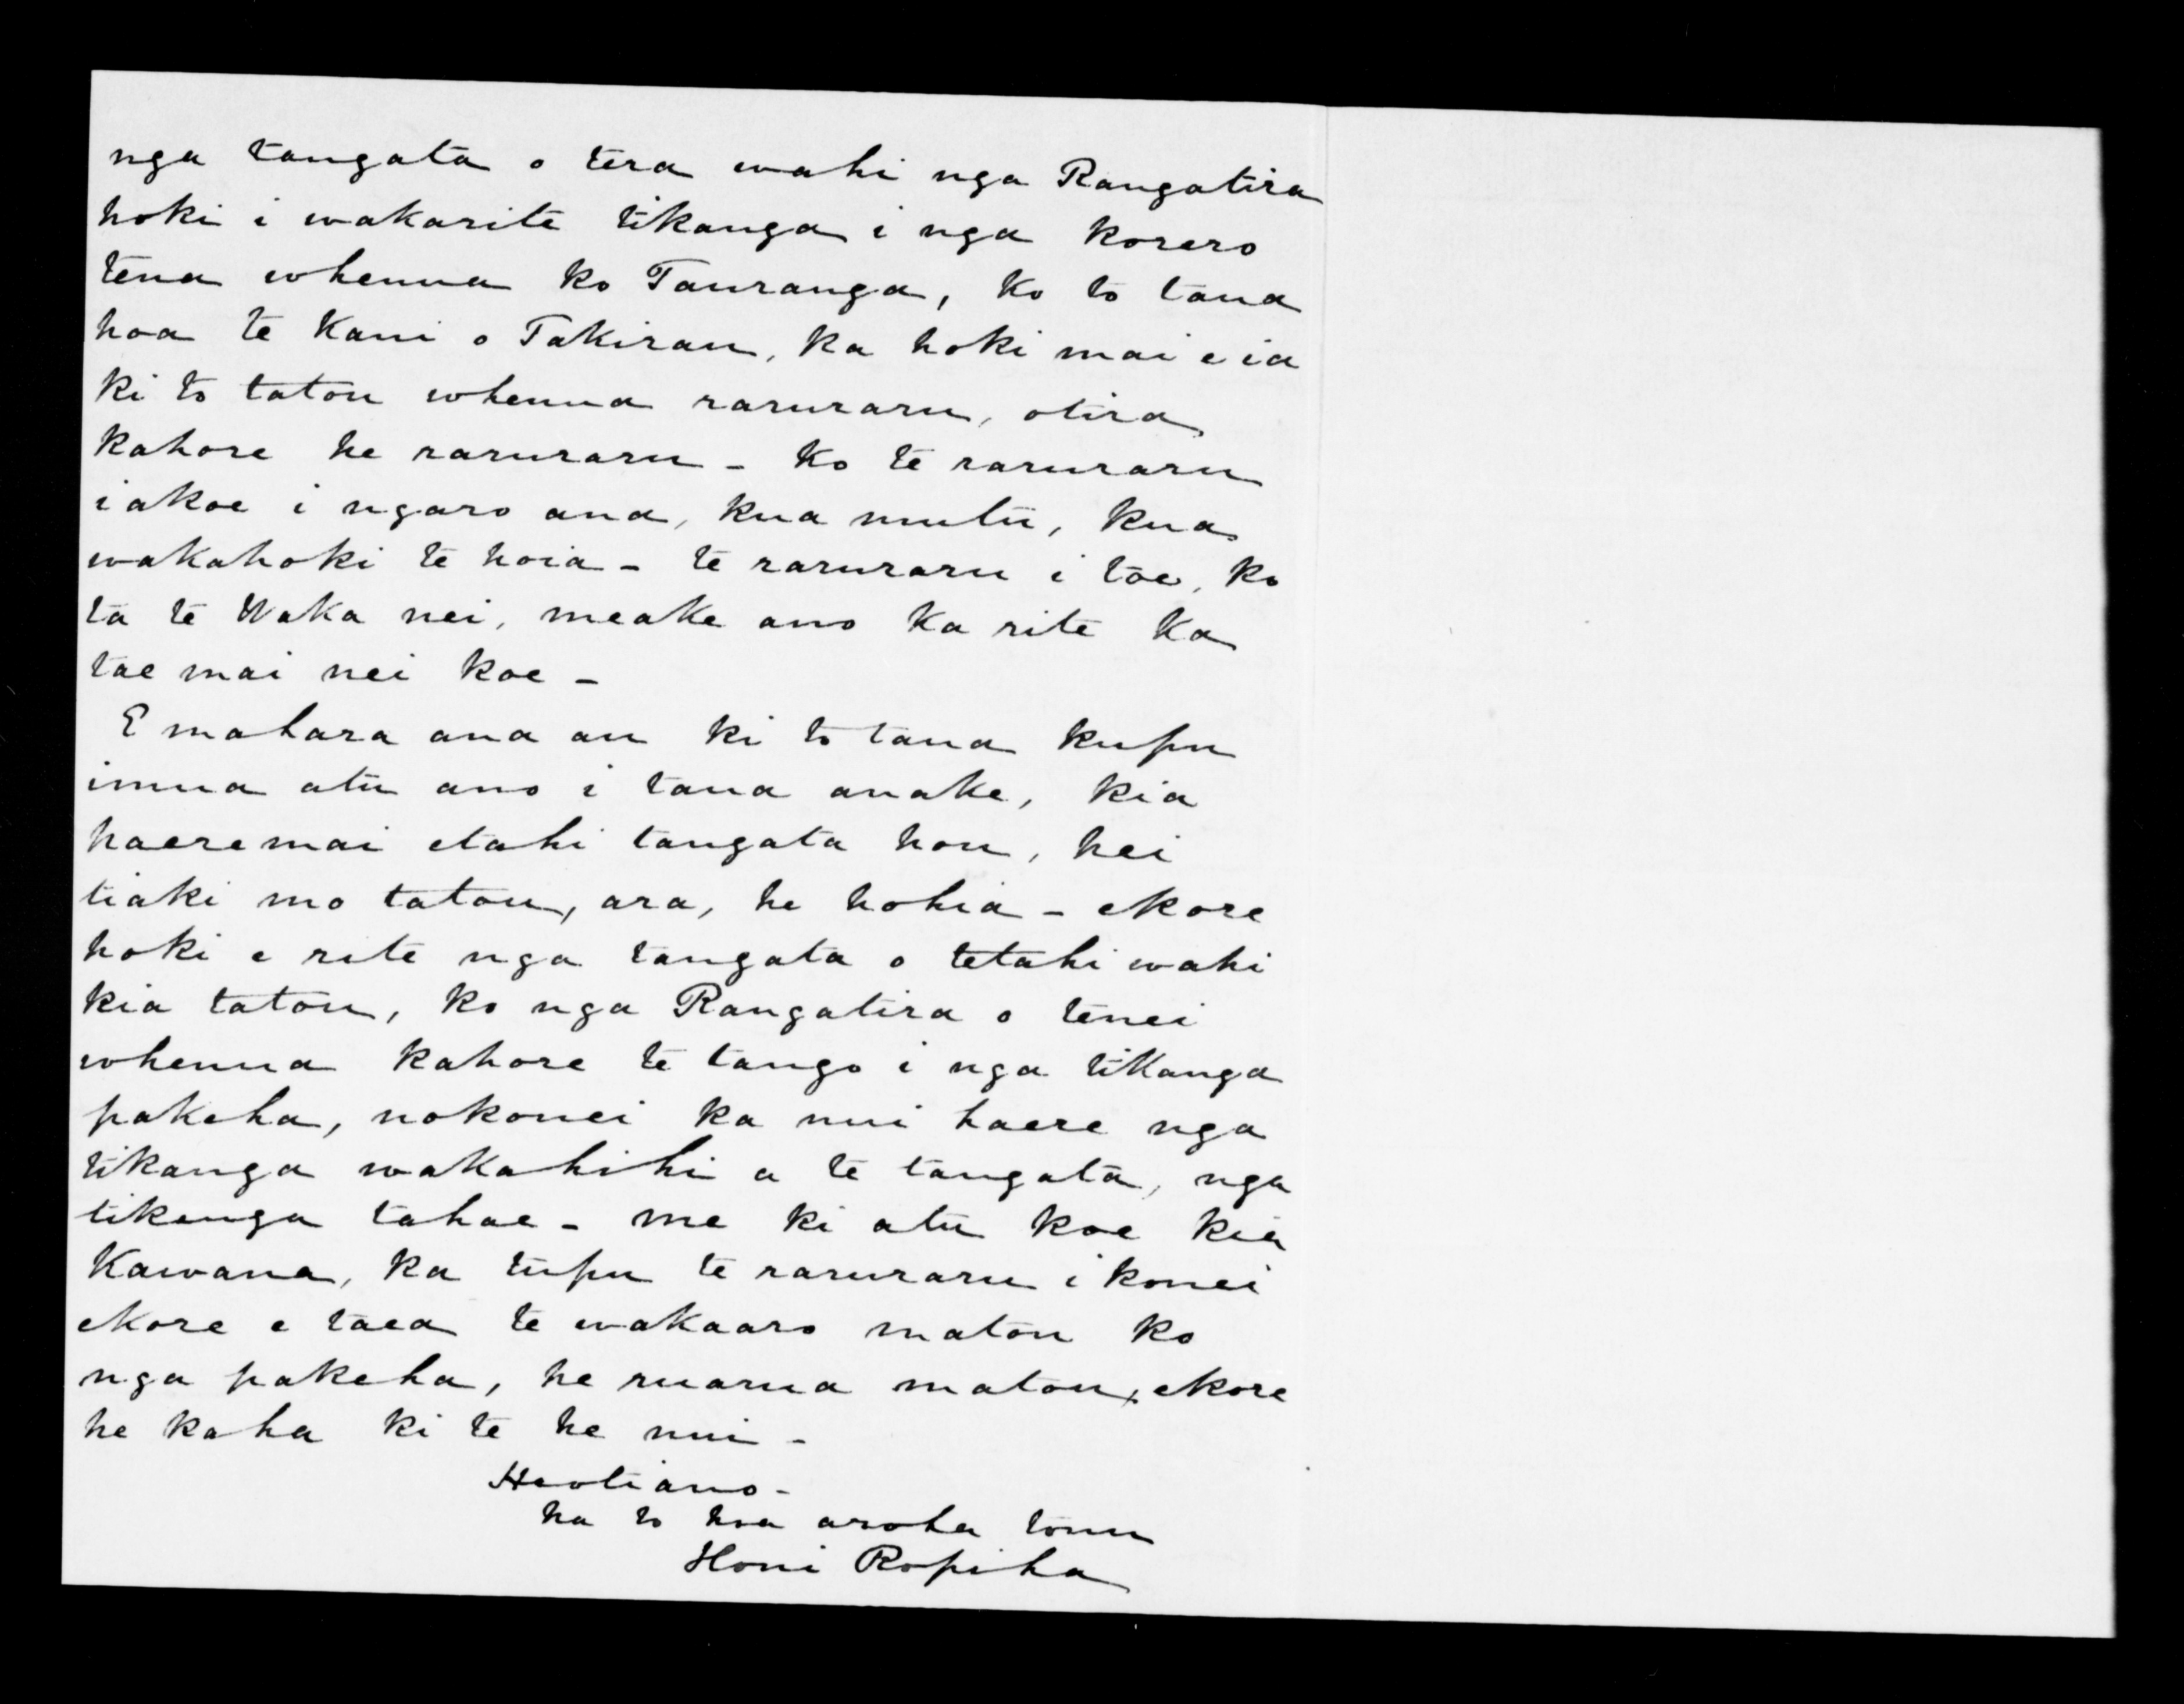 nga tangata o tera wahi nga Rangatira
hoki i wakarite tikanga i nga korero
tena whenua ko Tauranga, ko to taua
hoa te Kani o Takirau, ka hoki mai e ia
ki to tatou whenua raruraru, otira
kahore he raruraru - ko te raruraru
i akoe i ngaro ana, kua mutu, kua
wakahoki te hoia - te raruraru i toe, ko
ta te Waka nei, meake ano ka rite ka
tae mai nei koe -
E mahara ana au ki to taua kupu
imua atu ano i taua anake, kia
haeremai etahi tangata hou, hei
tiaki mo tatou, ara, he hohia - ekore
hoki e rite nga tangata o tetahi wahi
kia tatou, ko nga Rangatira o tenei
whenua kahore te tango i nga tikanga
pakeha, nokonei ka nui haere nga
tikanga wakahihi a te tangata, nga
tikanga tahae - me ki atu koe kia
Kawana, ka tupu te raruraru i konei
ekore e taea te wakaaro matou ko
nga pakeha, he ruarua matou, ekore
he kaha ki te he nui -
Heotiano -
na to hoa aroha tonu
Honi Ropiha